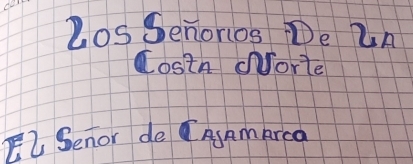 Los Señorios De La
Costa Norte
El Señor de Cajamarca